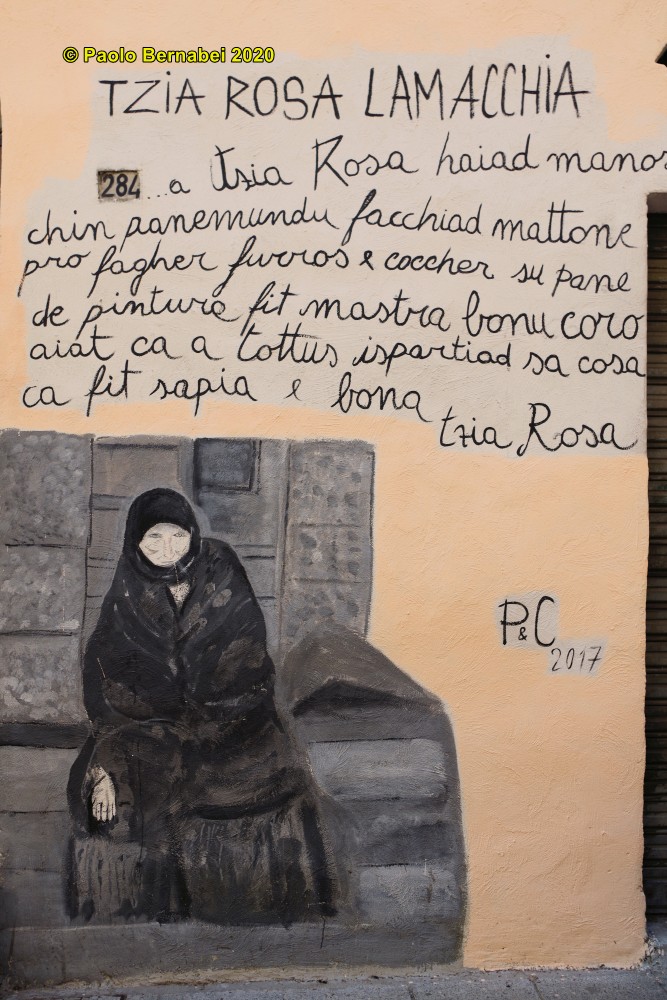 © Paolo Bernabei 2020
TZIA ROSA LAMACCHIA
284 ...a Tzia Rosa haiad manos
chin panemundu facchiad mattone
pro fagher furros e coccher su pane
de pinture fit mastra bonu coro
aiat ca a tottus ispartiad sa cosa
ca fit sapia e bona
tzia Rosa
P&C
2017